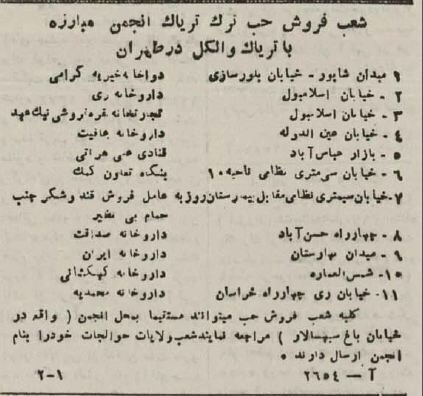 شعب فروش حب ترك ترياك انجمن مبارزه
با ترياك والكل در طهران
۱ ميدان شاپور - خيابان بلورسازی دواخانه خيريه گرامی
۲ - خيابان اسلامبول داروخانه ری
۳ - خيابان اسلامبول تجارتخانه قهوه فروشی نيك عهد
۴ - خيابان عين الدوله داروخانه عافيت
۵ - بازار عباس آباد قنادی علی هراتی
۶ - خيابان سی متری نظامی ناحيه ۱۰ بنگاه تعاون كمك
۷- خيابان سيمتری نظامی مقابل بيمارستان روزبه عامل فروش قند و شكر جنب
حمام بی نظير
۸ - چهارراه حسن آباد داروخانه صداقت
۹ - ميدان بهارستان داروخانه ايران
۱۰- شمس العماره داروخانه كهكشانی
۱۱- خيابان ری چهارراه خراسان داروخانه محمديه
كليه شعب فروش حب ميتوانند مستقيما بمحل انجمن ( واقع در
خيابان باغ سپهسالار ) مراجعه نمايند شعب ولايات حوالجات خود را بنام
انجمن ارسال دارند ۰
آ — ۲۶۵۴ ۱-۲